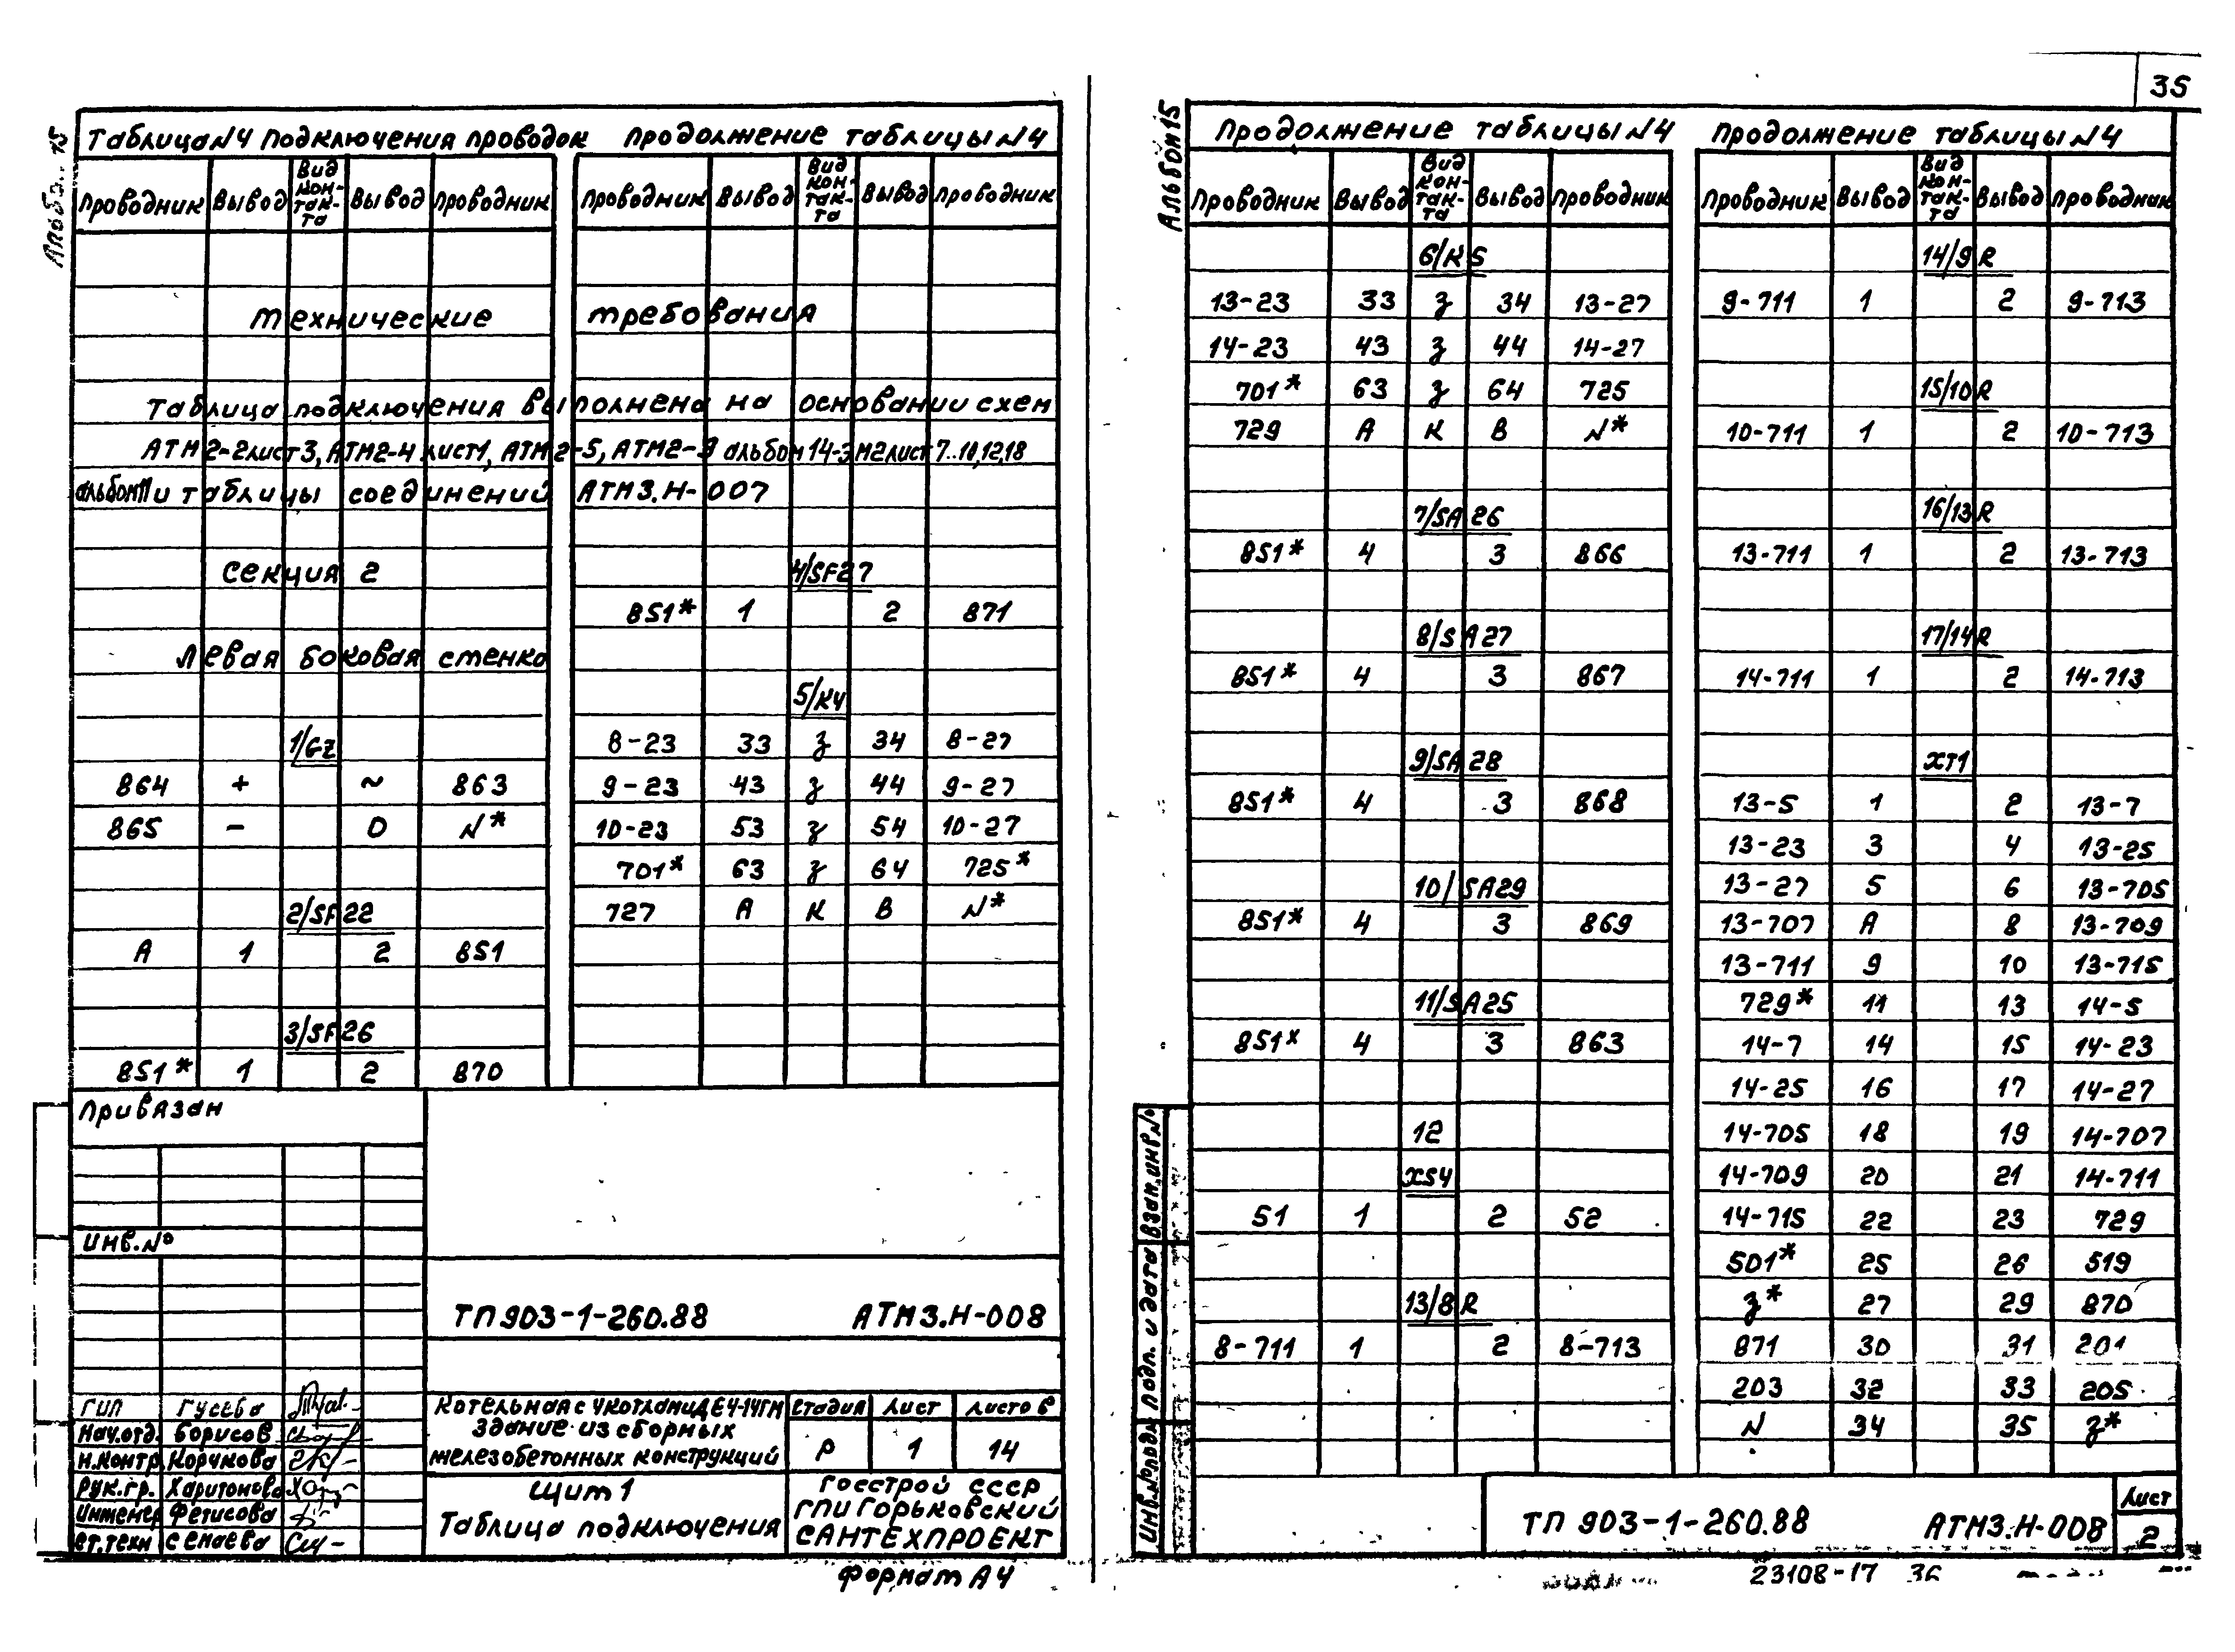 35
Альбом 15
Таблица N4 подключения проводок
Проводник Вывод Вид кон-так-та Вывод Проводник
Технические требования
Таблица подключения выполнена на основании схем
АТМ2-2 лист 3, АТМ2-4 лист 1, АТМ2-5, АТМ2-9 альбом 14-ЭМ2 лист 7..10,12,18
альбом и таблицы соединений АТМ3.Н-007
Секция 2
Левая боковая стенка
1/GZ
864 + ~ 863
865 - 0 N*
2/SF22
А 1 2 851
3/SF26
851* 1 2 870
Продолжение таблицы N4
Проводник Вывод Вид кон-так-та Вывод Проводник
4/SF27
851* 1 2 871
5/К4
8-23 33 з 34 8-27
9-23 43 з 44 9-27
10-23 53 з 54 10-27
701* 63 з 64 725*
727 А К В N*
Привязан
Инв.№
ТП 903-1-260.88 АТМ3.Н-008
ГИП Гусева
Нач.отд. Борисов
Н.контр. Корчкова
Рук.гр. Харитонова
Инженер Фетисова
Ст.техн Семаева
Котельная с 4 котлами ДЕ4-14ГМ
Здание из сборных
железобетонных конструкций
Стадия Лист Листов
Р 1 14
Щит 1
Таблица подключения
Госстрой СССР
ГПИ Горьковский
САНТЕХПРОЕКТ
Формат А4
Альбом 15
Продолжение таблицы N4
Проводник Вывод Вид кон-так-та Вывод Проводник
6/К5
13-23 33 з 34 13-27
14-23 43 з 44 14-27
701* 63 з 64 725
729 А К В N*
7/SA26
851* 4 3 866
8/SA27
851* 4 3 867
9/SA28
851* 4 3 868
10/SA29
851* 4 3 869
11/SA25
851* 4 3 863
12
XS4
51 1 2 52
13/8R
8-711 1 2 8-713
Продолжение таблицы N4
Проводник Вывод Вид кон-так-та Вывод Проводник
14/9R
9-711 1 2 9-713
15/10R
10-711 1 2 10-713
16/13R
13-711 1 2 13-713
17/14R
14-711 1 2 14-713
XT1
13-5 1 2 13-7
13-23 3 4 13-25
13-27 5 6 13-705
13-707 А 8 13-709
13-711 9 10 13-715
729* 11 13 14-5
14-7 14 15 14-23
14-25 16 17 14-27
14-705 18 19 14-707
14-709 20 21 14-711
14-715 22 23 729
501* 25 26 519
з* 27 29 870
871 30 31 201
203 32 33 205
N 34 35 з*
Инв.№ подл Подп. и дата Взам.инв.№
ТП 903-1-260.88 АТМ3.Н-008
Лист
2
23108-17 36